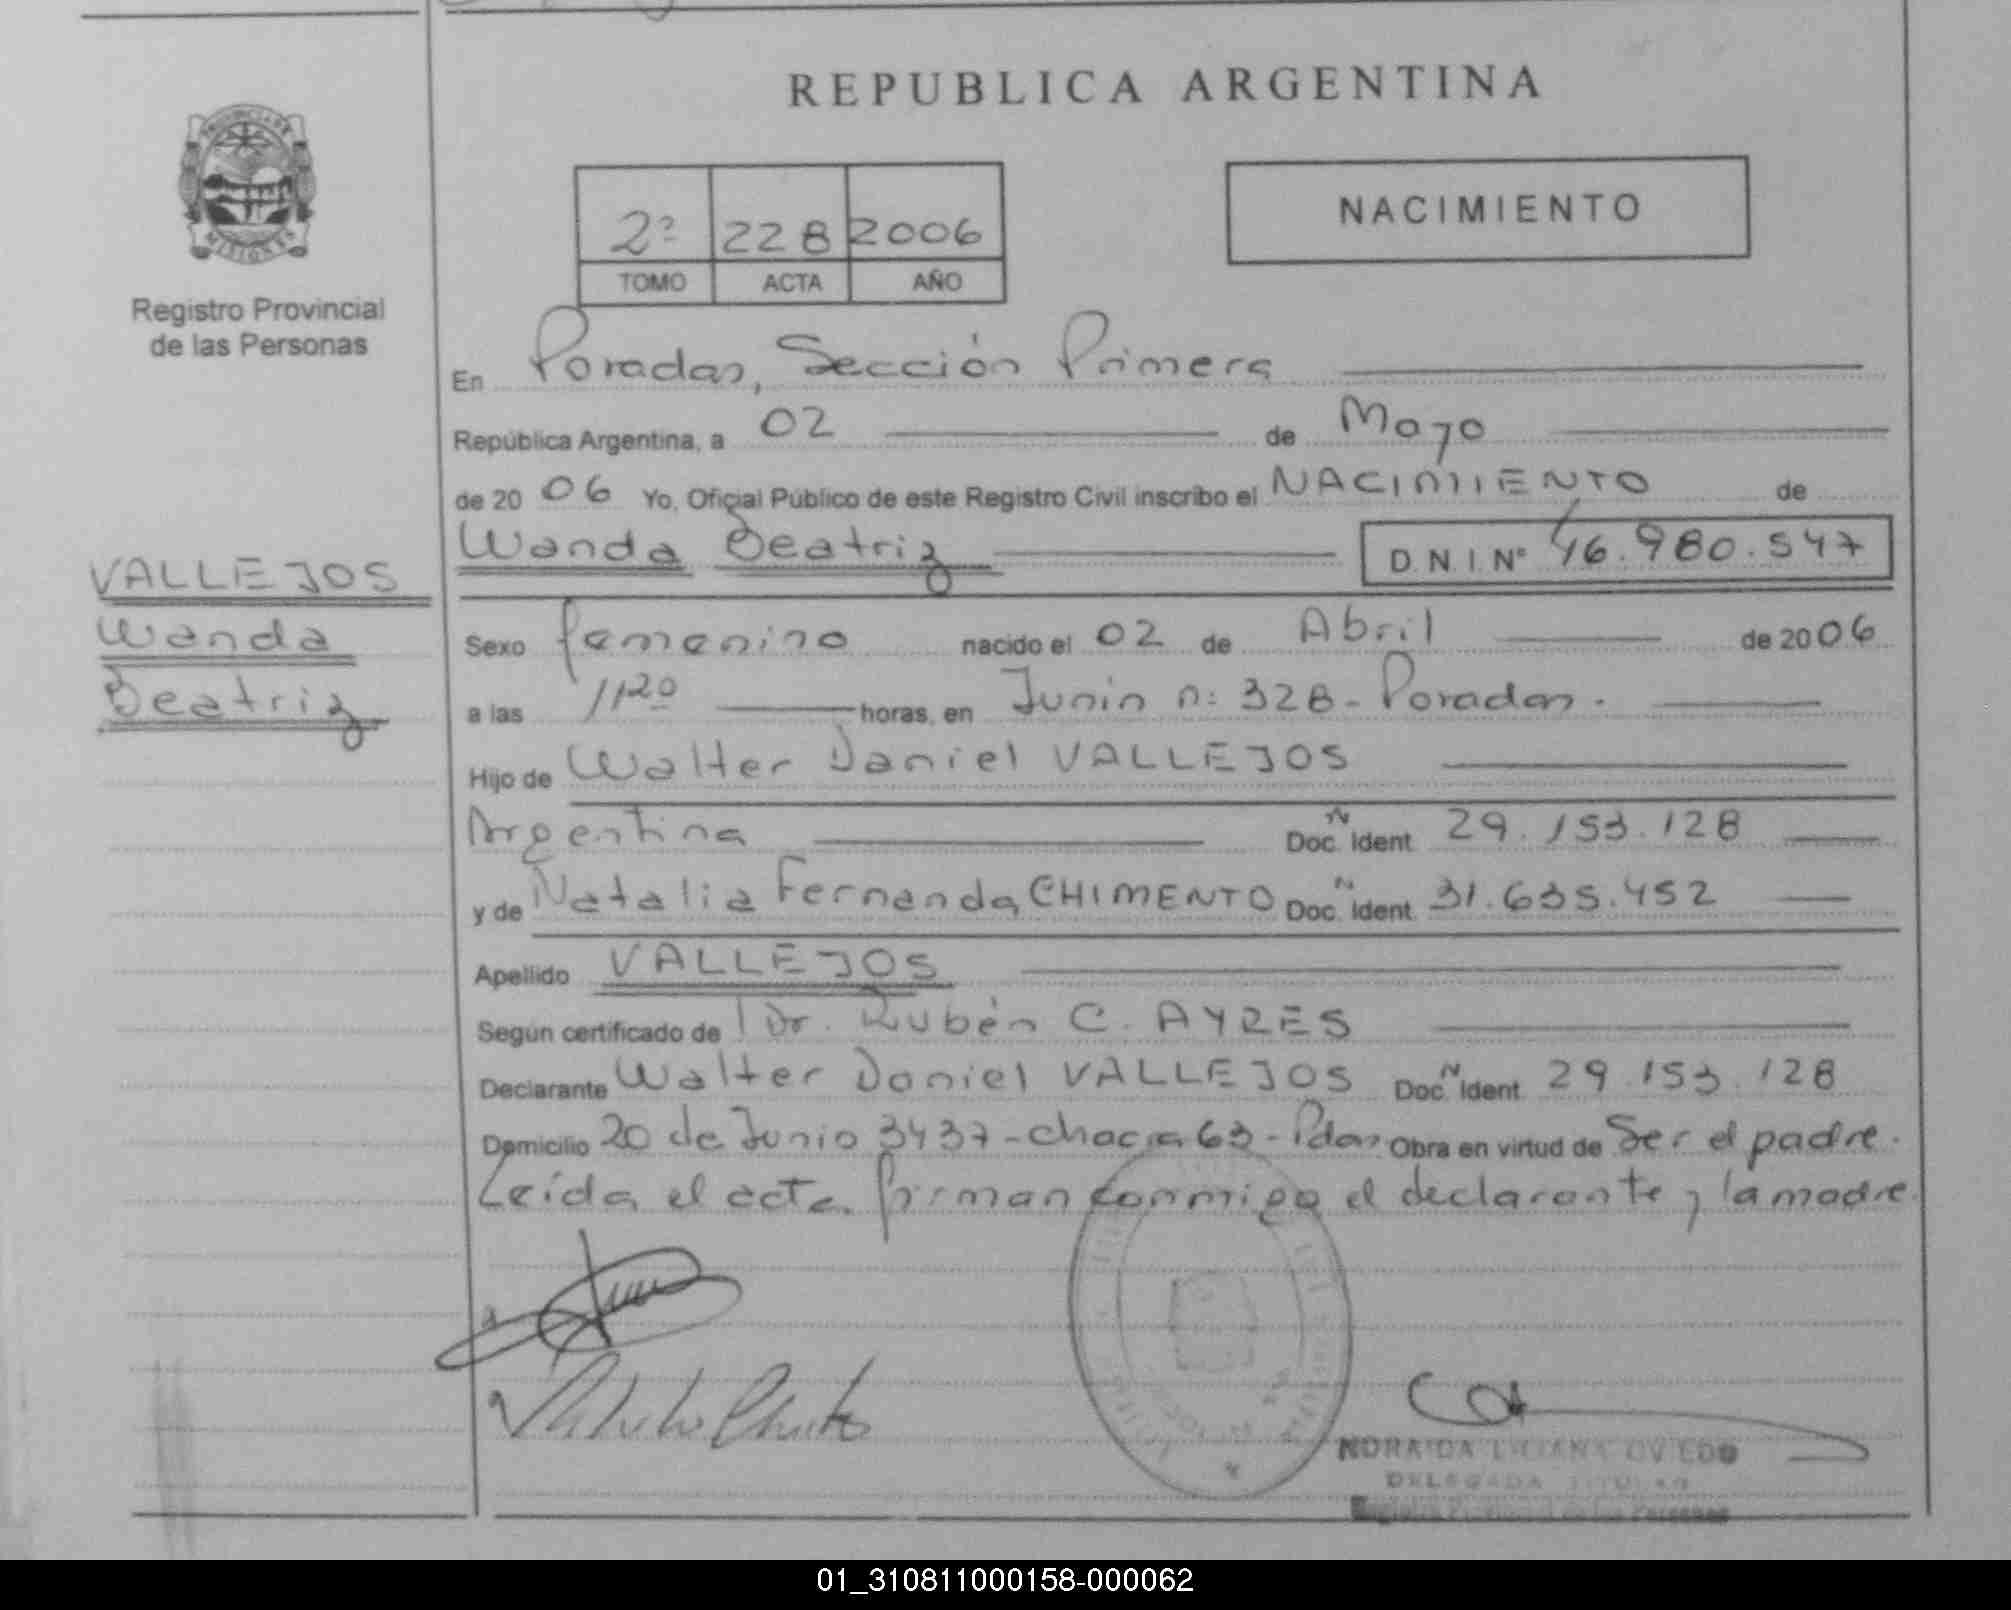 REPUBLICA ARGENTINA
PROVINCIA DE
MISIONES
Registro Provincial
de las Personas
2º 228 2006
TOMO ACTA AÑO
NACIMIENTO
En Posadas, Sección Primera
República Argentina, a 02 de Mayo
de 2006 Yo, Oficial Público de este Registro Civil inscribo el NACIMIENTO de
Wanda Beatriz D.N.I. Nº 46.980.547
VALLEJOS
Wanda
Beatriz
Sexo femenino nacido el 02 de Abril de 2006
a las 11:20 horas, en Junin n: 328 - Posadas.
Hijo de Walter Daniel VALLEJOS
Argentina Doc. Nº Ident. 29.153.128
y de Natalia Fernanda CHIMENTO Doc. Nº Ident. 31.635.452
Apellido VALLEJOS
Según certificado de Dr. Rubén C. AYRES
Declarante Walter Daniel VALLEJOS Doc. Nº Ident. 29.153.128
Domicilio 20 de Junio 3437 - chacra 63 - Pdas. Obra en virtud de Ser el padre.
Leída el acta, firman conmigo el declarante y la madre.
NORAIDA LILIANA OVIEDO
DELEGADA TITULAR
Registro Provincial de las Personas
01_310811000158-000062